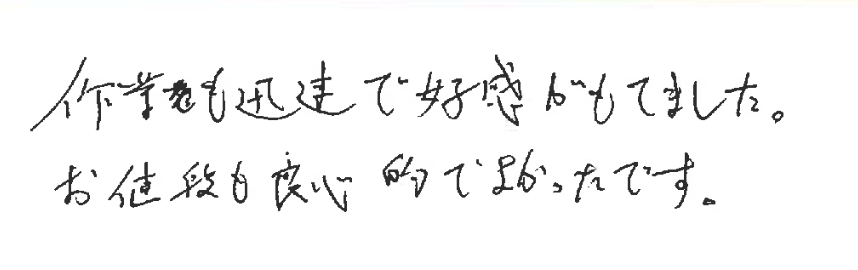 作業も迅速で好感がもてました。
お値段も良心的でよかったです。